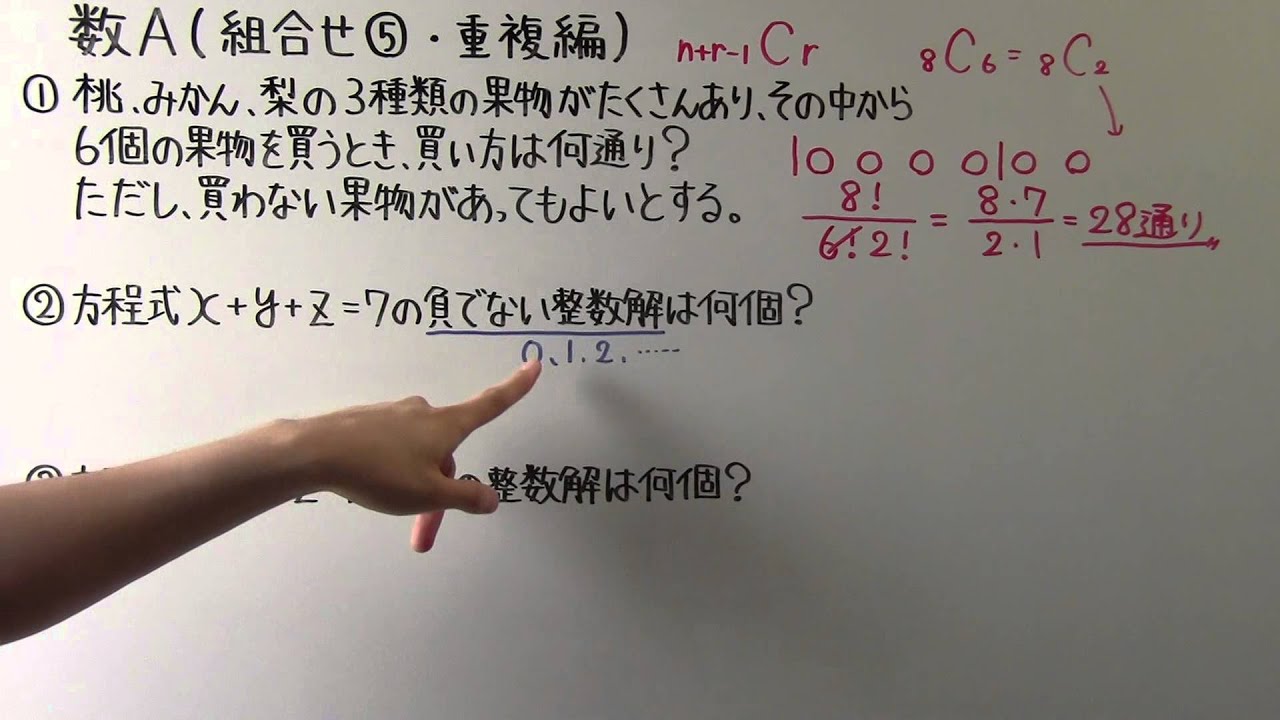 数A(組合せ⑤・重複編)
n+r-1Cr
8C6=8C2
① 桃、みかん、梨の3種類の果物がたくさんあり、その中から
6個の果物を買うとき、買い方は何通り?
ただし、買わない果物があってもよいとする。
|○ ○ ○ ○|○ ○
8!/6!2! = 8・7/2・1 = 28通り
② 方程式x+y+z=7の負でない整数解は何個?
0、1、2、……
の整数解は何個?